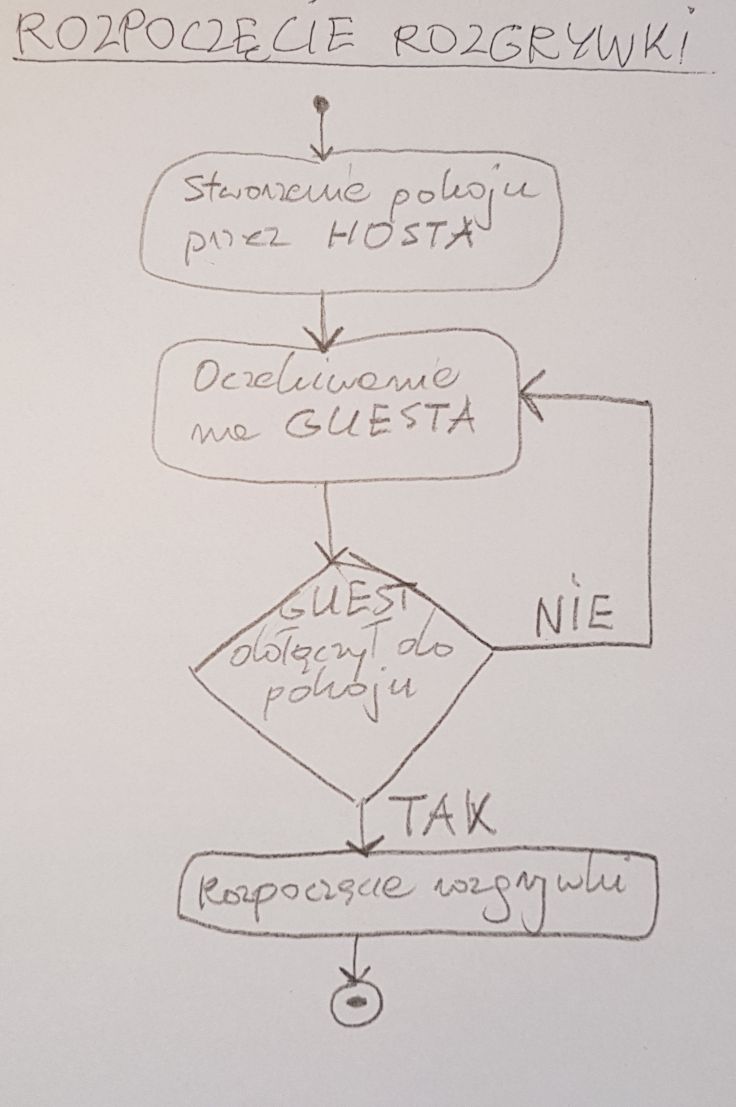 ROZPOCZĘCIE ROZGRYWKI
Stworzenie pokoju
przez HOSTA
Oczekiwanie
na GUESTA
GUEST
dołączył do
pokoju
NIE
TAK
Rozpoczęcie rozgrywki